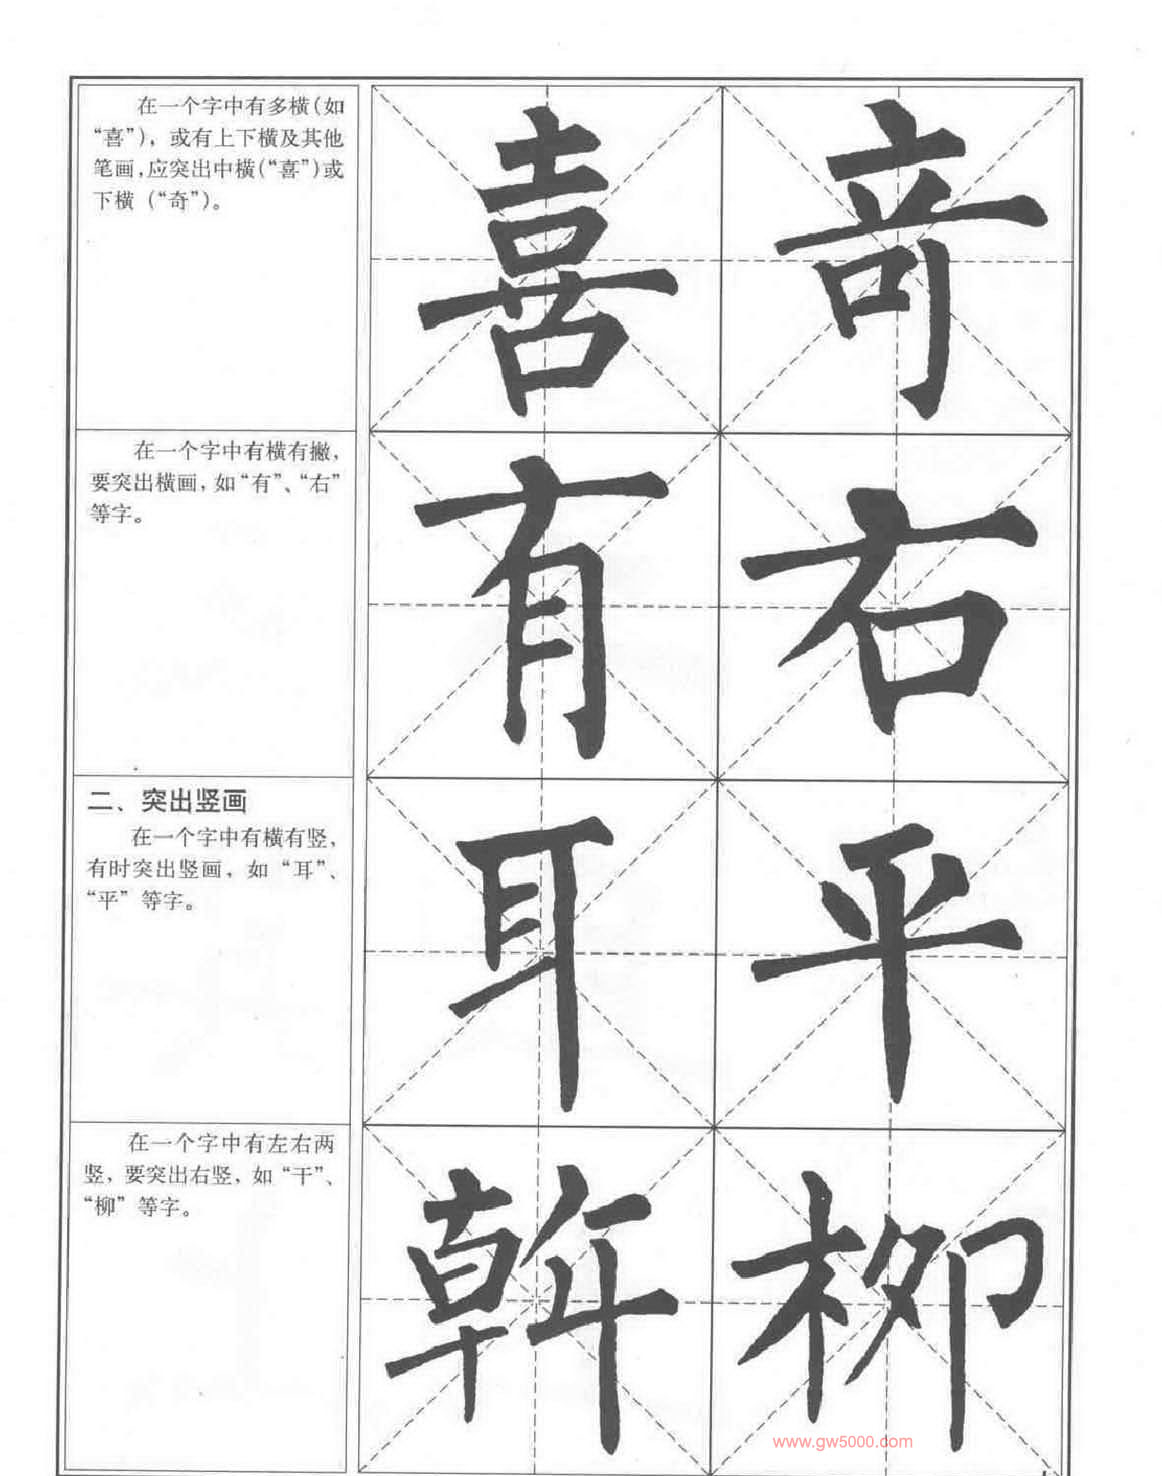 在一个字中有多横(如
“喜”)，或有上下横及其他
笔画,应突出中横(“喜”)或
下横（“奇”)。
喜 奇
在一个字中有横有撇,
要突出横画,如“有”、“右”
等字。
有 右
二、突出竖画
在一个字中有横有竖,
有时突出竖画，如“耳”、
“平”等字。
耳 平
在一个字中有左右两
竖，要突出右竖，如“干”、
“柳”等字。
柳
www.gw5000.com